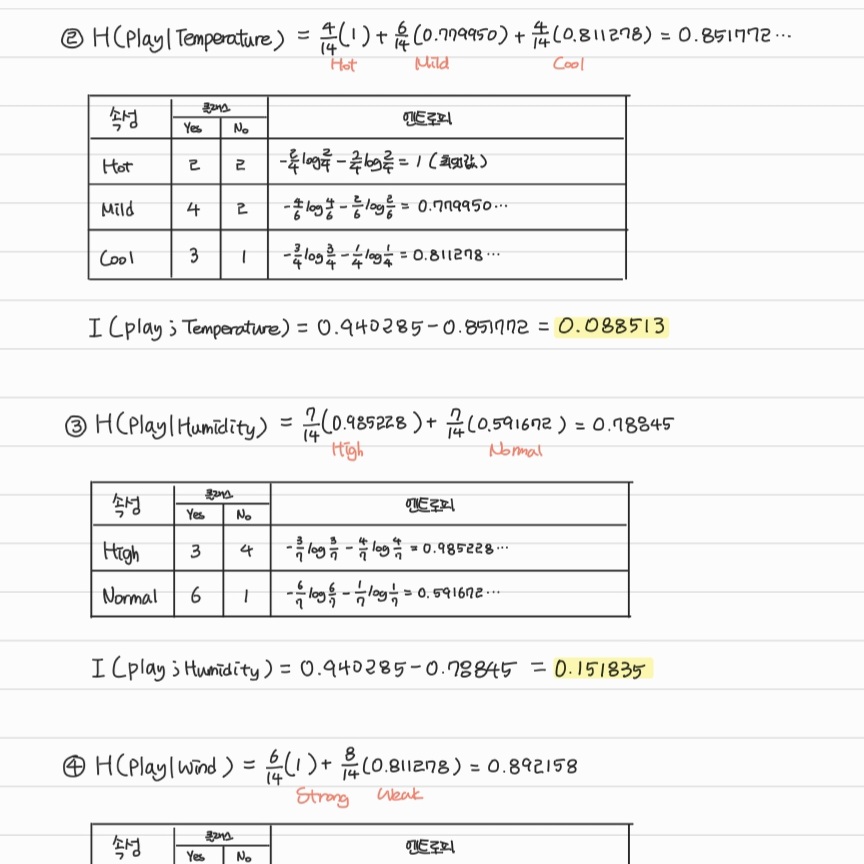 ② H(Play|Temperature) = 4/14(1) + 6/14(0.779950) + 4/14(0.811278) = 0.851772…
Hot Mild Cool
속성 클래스 엔트로피
Yes No
Hot 2 2 -2/4log2/4 - 2/4log2/4 = 1 (최대값)
Mild 4 2 -4/6log4/6 - 2/6log2/6 = 0.779950…
Cool 3 1 -3/4log3/4 - 1/4log1/4 = 0.811278…
I(play; Temperature) = 0.940285 - 0.851772 = 0.088513
③ H(Play|Humidity) = 7/14(0.985228) + 7/14(0.591672) = 0.78845
High Normal
속성 클래스 엔트로피
Yes No
High 3 4 -3/7log3/7 - 4/7log4/7 = 0.985228…
Normal 6 1 -6/7log6/7 - 1/7log1/7 = 0.591672…
I(play; Humidity) = 0.940285 - 0.78845 = 0.151835
④ H(Play|Wind) = 6/14(1) + 8/14(0.811278) = 0.892158
Strong Weak
속성 클래스 엔트로피
Yes No